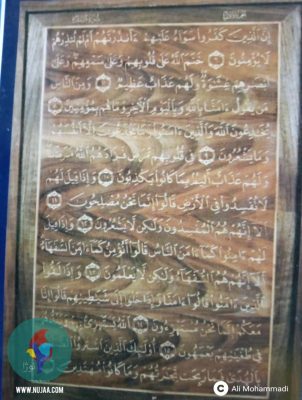 إِنَّ الَّذِينَ كَفَرُوا سَوَاءٌ عَلَيْهِمْ ءَأَنذَرْتَهُمْ أَمْ لَمْ تُنذِرْهُمْ
لَا يُؤْمِنُونَ ٦ خَتَمَ اللَّهُ عَلَىٰ قُلُوبِهِمْ وَعَلَىٰ سَمْعِهِمْ وَعَلَىٰ
أَبْصَارِهِمْ غِشَاوَةٌ وَلَهُمْ عَذَابٌ عَظِيمٌ ٧ وَمِنَ النَّاسِ
مَن يَقُولُ ءَامَنَّا بِاللَّهِ وَبِالْيَوْمِ الْآخِرِ وَمَا هُم بِمُؤْمِنِينَ ٨
يُخَادِعُونَ اللَّهَ وَالَّذِينَ ءَامَنُوا وَمَا يَخْدَعُونَ إِلَّا أَنفُسَهُمْ
وَمَا يَشْعُرُونَ ٩ فِي قُلُوبِهِم مَّرَضٌ فَزَادَهُمُ اللَّهُ مَرَضًا
وَلَهُمْ عَذَابٌ أَلِيمٌ بِمَا كَانُوا يَكْذِبُونَ ١٠ وَإِذَا قِيلَ لَهُمْ
لَا تُفْسِدُوا فِي الْأَرْضِ قَالُوا إِنَّمَا نَحْنُ مُصْلِحُونَ ١١
أَلَا إِنَّهُمْ هُمُ الْمُفْسِدُونَ وَلَٰكِن لَّا يَشْعُرُونَ ١٢ وَإِذَا قِيلَ
لَهُمْ ءَامِنُوا كَمَا ءَامَنَ النَّاسُ قَالُوا أَنُؤْمِنُ كَمَا ءَامَنَ السُّفَهَاءُ
أَلَا إِنَّهُمْ هُمُ السُّفَهَاءُ وَلَٰكِن لَّا يَعْلَمُونَ ١٣ وَإِذَا لَقُوا
الَّذِينَ ءَامَنُوا قَالُوا ءَامَنَّا وَإِذَا خَلَوْا إِلَىٰ شَيَاطِينِهِمْ قَالُوا إِنَّا
مَعَكُمْ إِنَّمَا نَحْنُ مُسْتَهْزِءُونَ ١٤ اللَّهُ يَسْتَهْزِئُ بِهِمْ وَيَمُدُّهُمْ
فِي طُغْيَانِهِمْ يَعْمَهُونَ ١٥ أُولَٰئِكَ الَّذِينَ اشْتَرَوُا الضَّلَالَةَ
بِالْهُدَىٰ فَمَا رَبِحَت تِّجَارَتُهُمْ وَمَا كَانُوا مُهْتَدِينَ ١٦
WWW.NUJAA.COM
© Ali Mohammadi